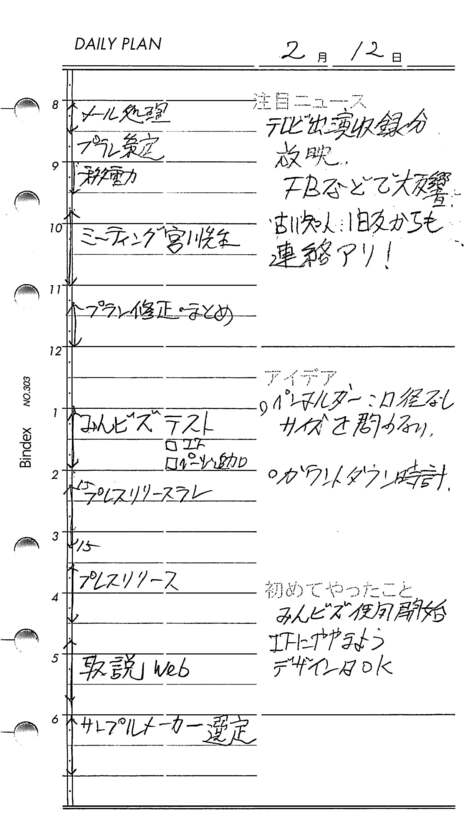 DAILY PLAN
2月 12日
8
メール処理
プラン策定
9
移動
10
ミーティング 宮川先生
11
プラン修正・まとめ
12
1
みんビズ テスト
□
□ パーツ追加
2
15 プレスリリースプラン
3
15
プレスリリース
4
5
取説 Web
6
サンプルメーカー選定
注目ニュース
テレビ出演収録分
放映.
FBなどで大反響.
古川知人:旧友からも
連絡アリ!
アイデア
○ペンホルダー:口径なし
サイズを問わない.
○カウントダウン時計.
初めてやったこと
みんビズ使用開始
デザインはOK
Bindex NO.303